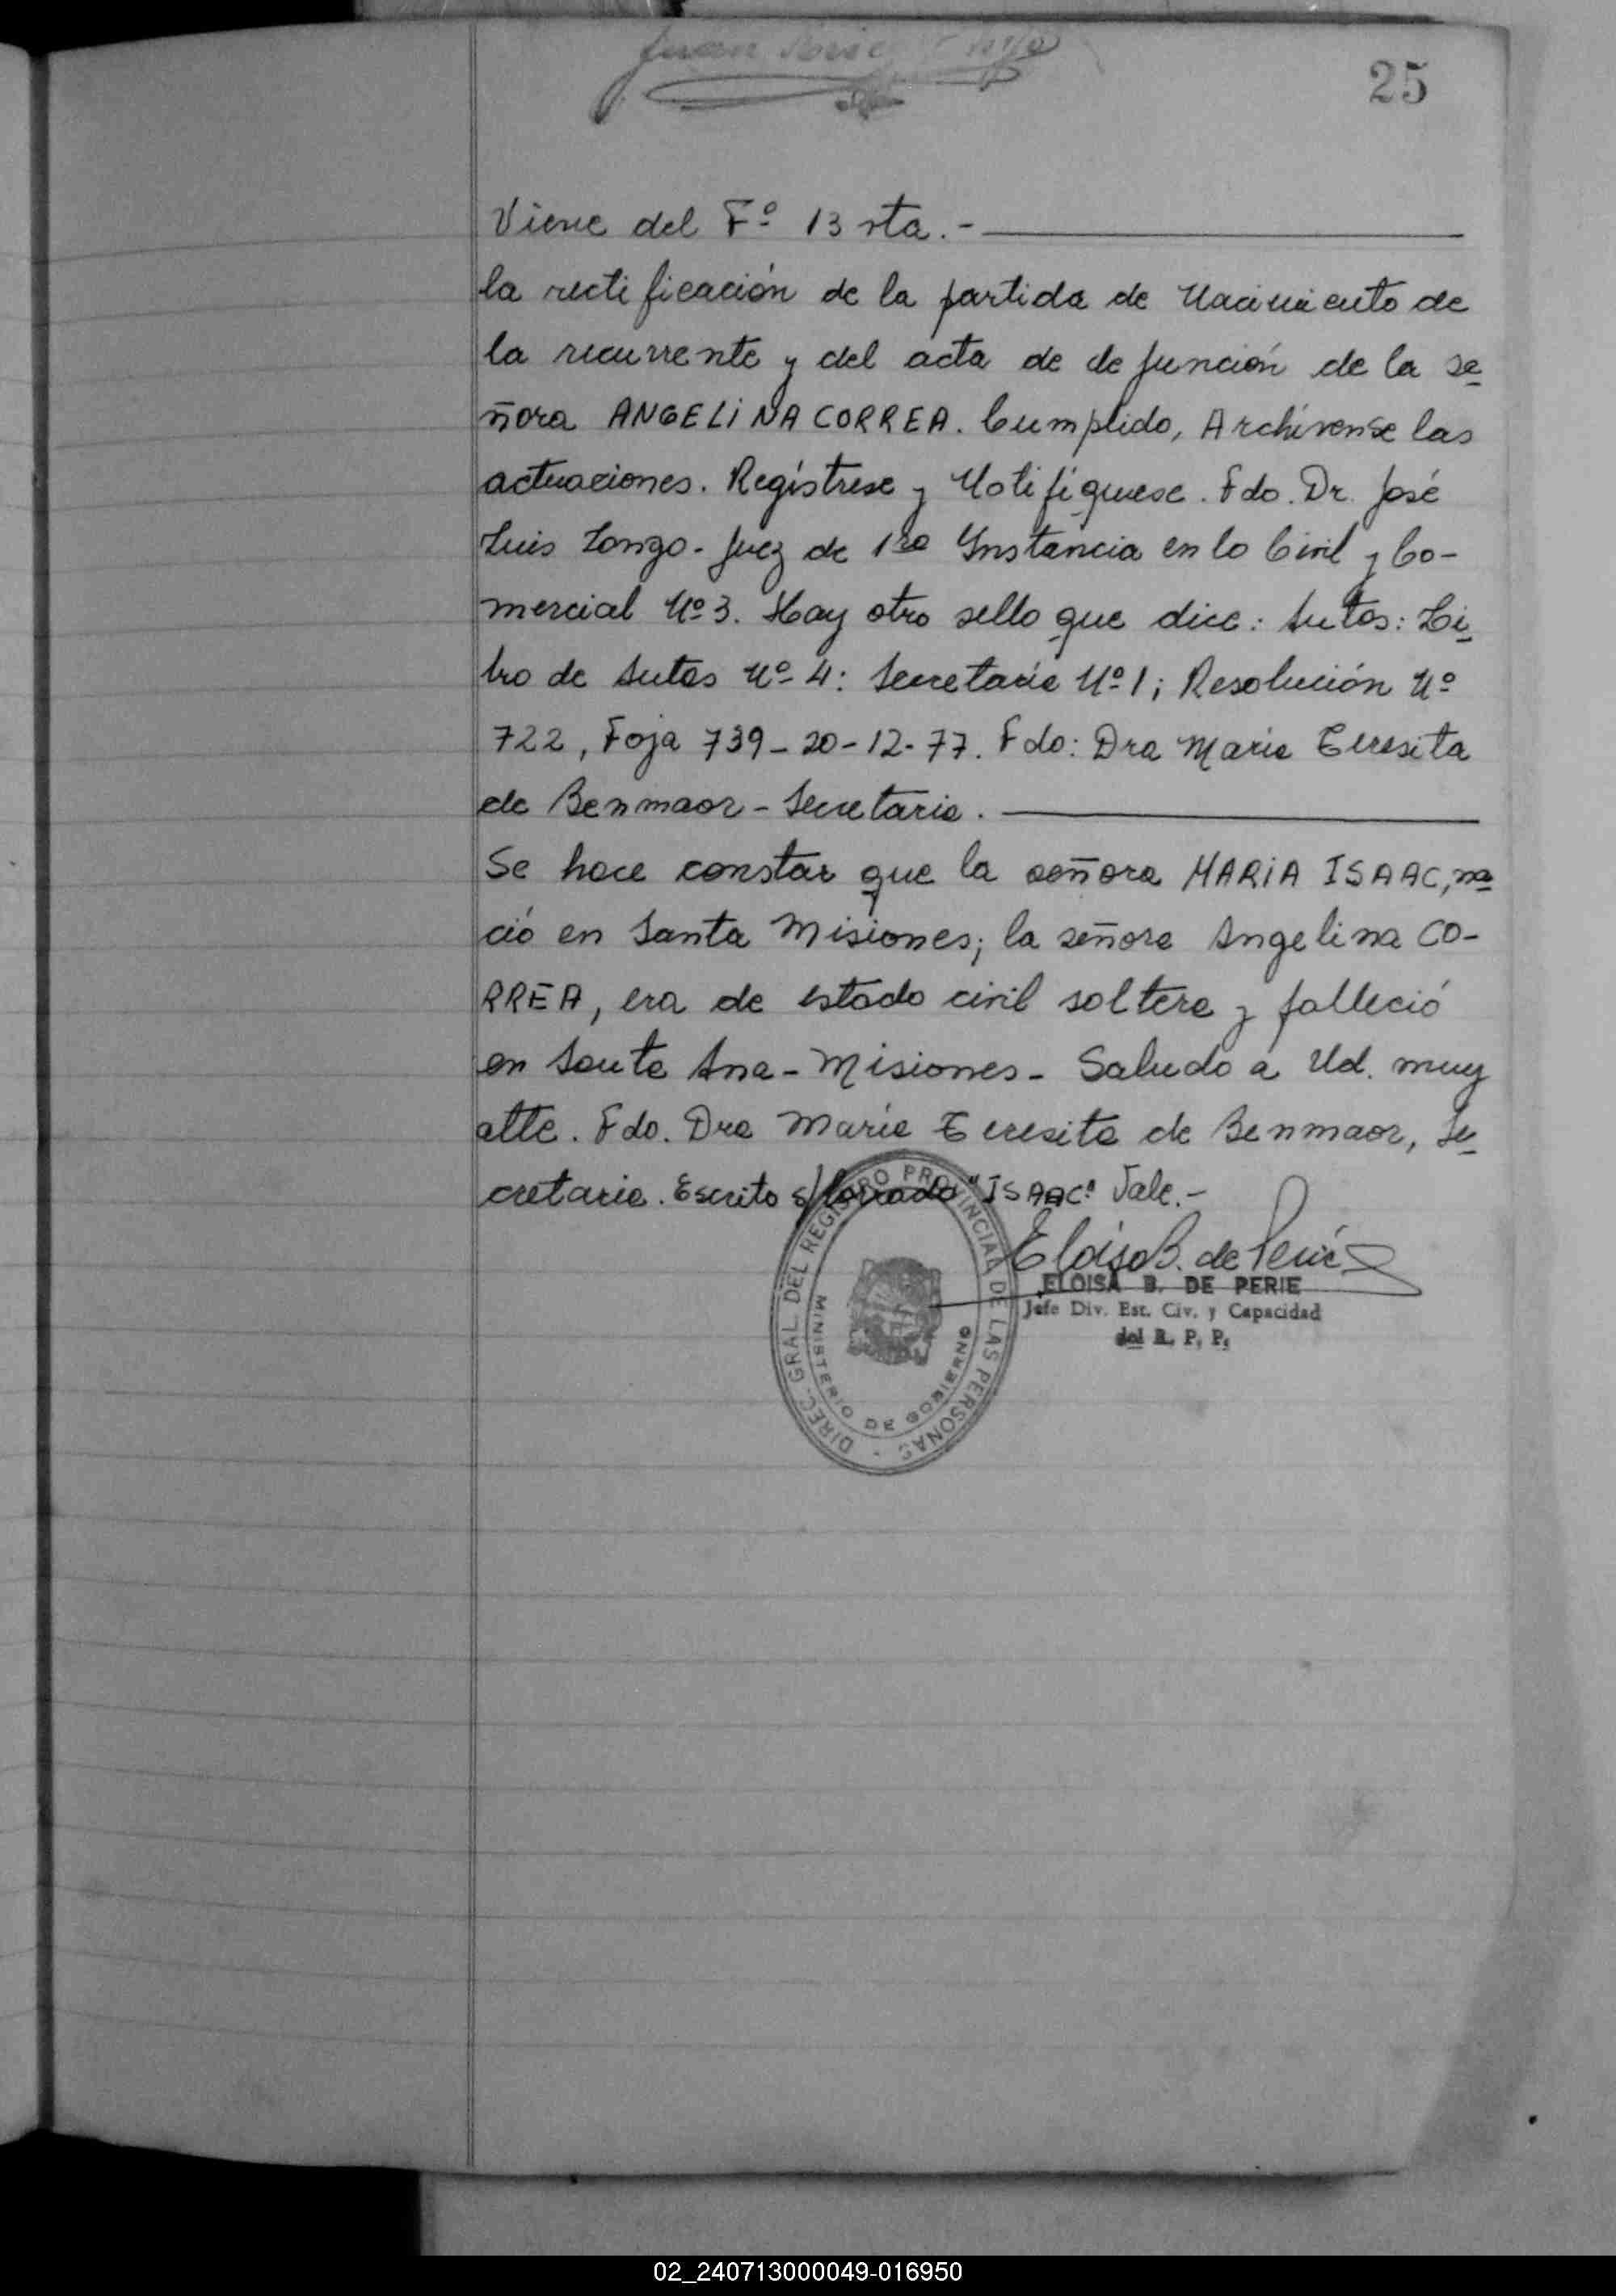 Juan
25
Viene del Fº 13 vta.-
la rectificación de la partida de Nacimiento de
la recurrente y del acta de defunción de la se
ñora ANGELINA CORREA. Cumplido, Archívense las
actuaciones. Regístrese y Notifíquese. Fdo. Dr. José
Luis Longo - Juez de 1ra Instancia en lo Civil y Co-
mercial Nº 3. Hay otro sello que dice: Autos: Li
bro de Autos Nº 4: Secretaría Nº 1; Resolución Nº
722, Foja 739 - 20-12-77. Fdo: Dra María Teresita
de Benmaor - Secretaria.
Se hace constar que la señora MARIA ISAAC, na
ció en Santa Misiones; la señora Angelina CO-
RREA, era de estado civil soltera y falleció
en Santa Ana - Misiones - Saludo a Ud. muy
atte. Fdo. Dra María Teresita de Benmaor, Se
cretaria. Escrito s/borrado "ISAAC" Vale.-
Eloisa B. de Perié
ELOISA B. DE PERIE
Jefe Div. Est. Civ. y Capacidad
del R. P. P.
DIREC. GRAL. DEL REGISTRO PROVINCIAL DE LAS PERSONAS -
MINISTERIO DE GOBIERNO
02_240713000049-016950